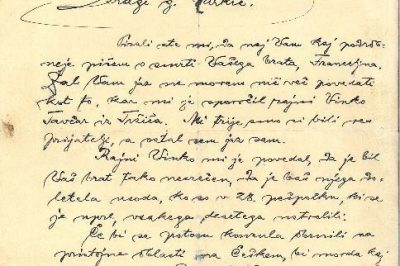 Dragi g.
Pisali ste mi, da naj Vam kaj podrob-
neje pišem o smrti Vašega brata, Franceljna.
Žal Vam jaz ne morem več povedati
kot to, kar mi je sporočil rajni Vinko
Tavčar iz Tržiča. Mi trije smo si bili
prijatelji, a ostal sem jaz sam.
Rajni Vinko mi je povedal, da je bil
Vaš brat tako nesrečen, da je baš njega do-
letela usoda, ko so v 28. pešpolku, ki se
je uprl, vsakega desetega ustrelili.
Če bi se potom konzula obrnili na
pristojne oblasti na Češkem, bi morda kaj